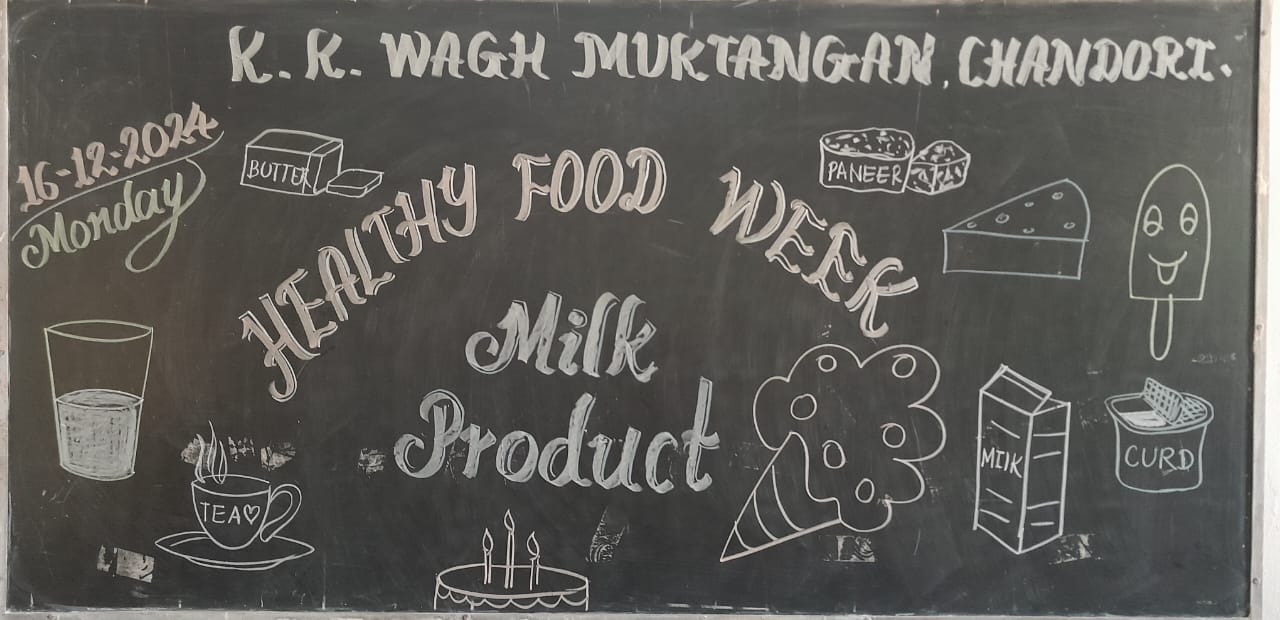 K. K. WAGH MUKTANGAN, CHANDORI.
16-12-2024
Monday
BUTTER
PANEER
HEALTHY FOOD WEEK
Milk
Product
TEA
MIlK
CURD